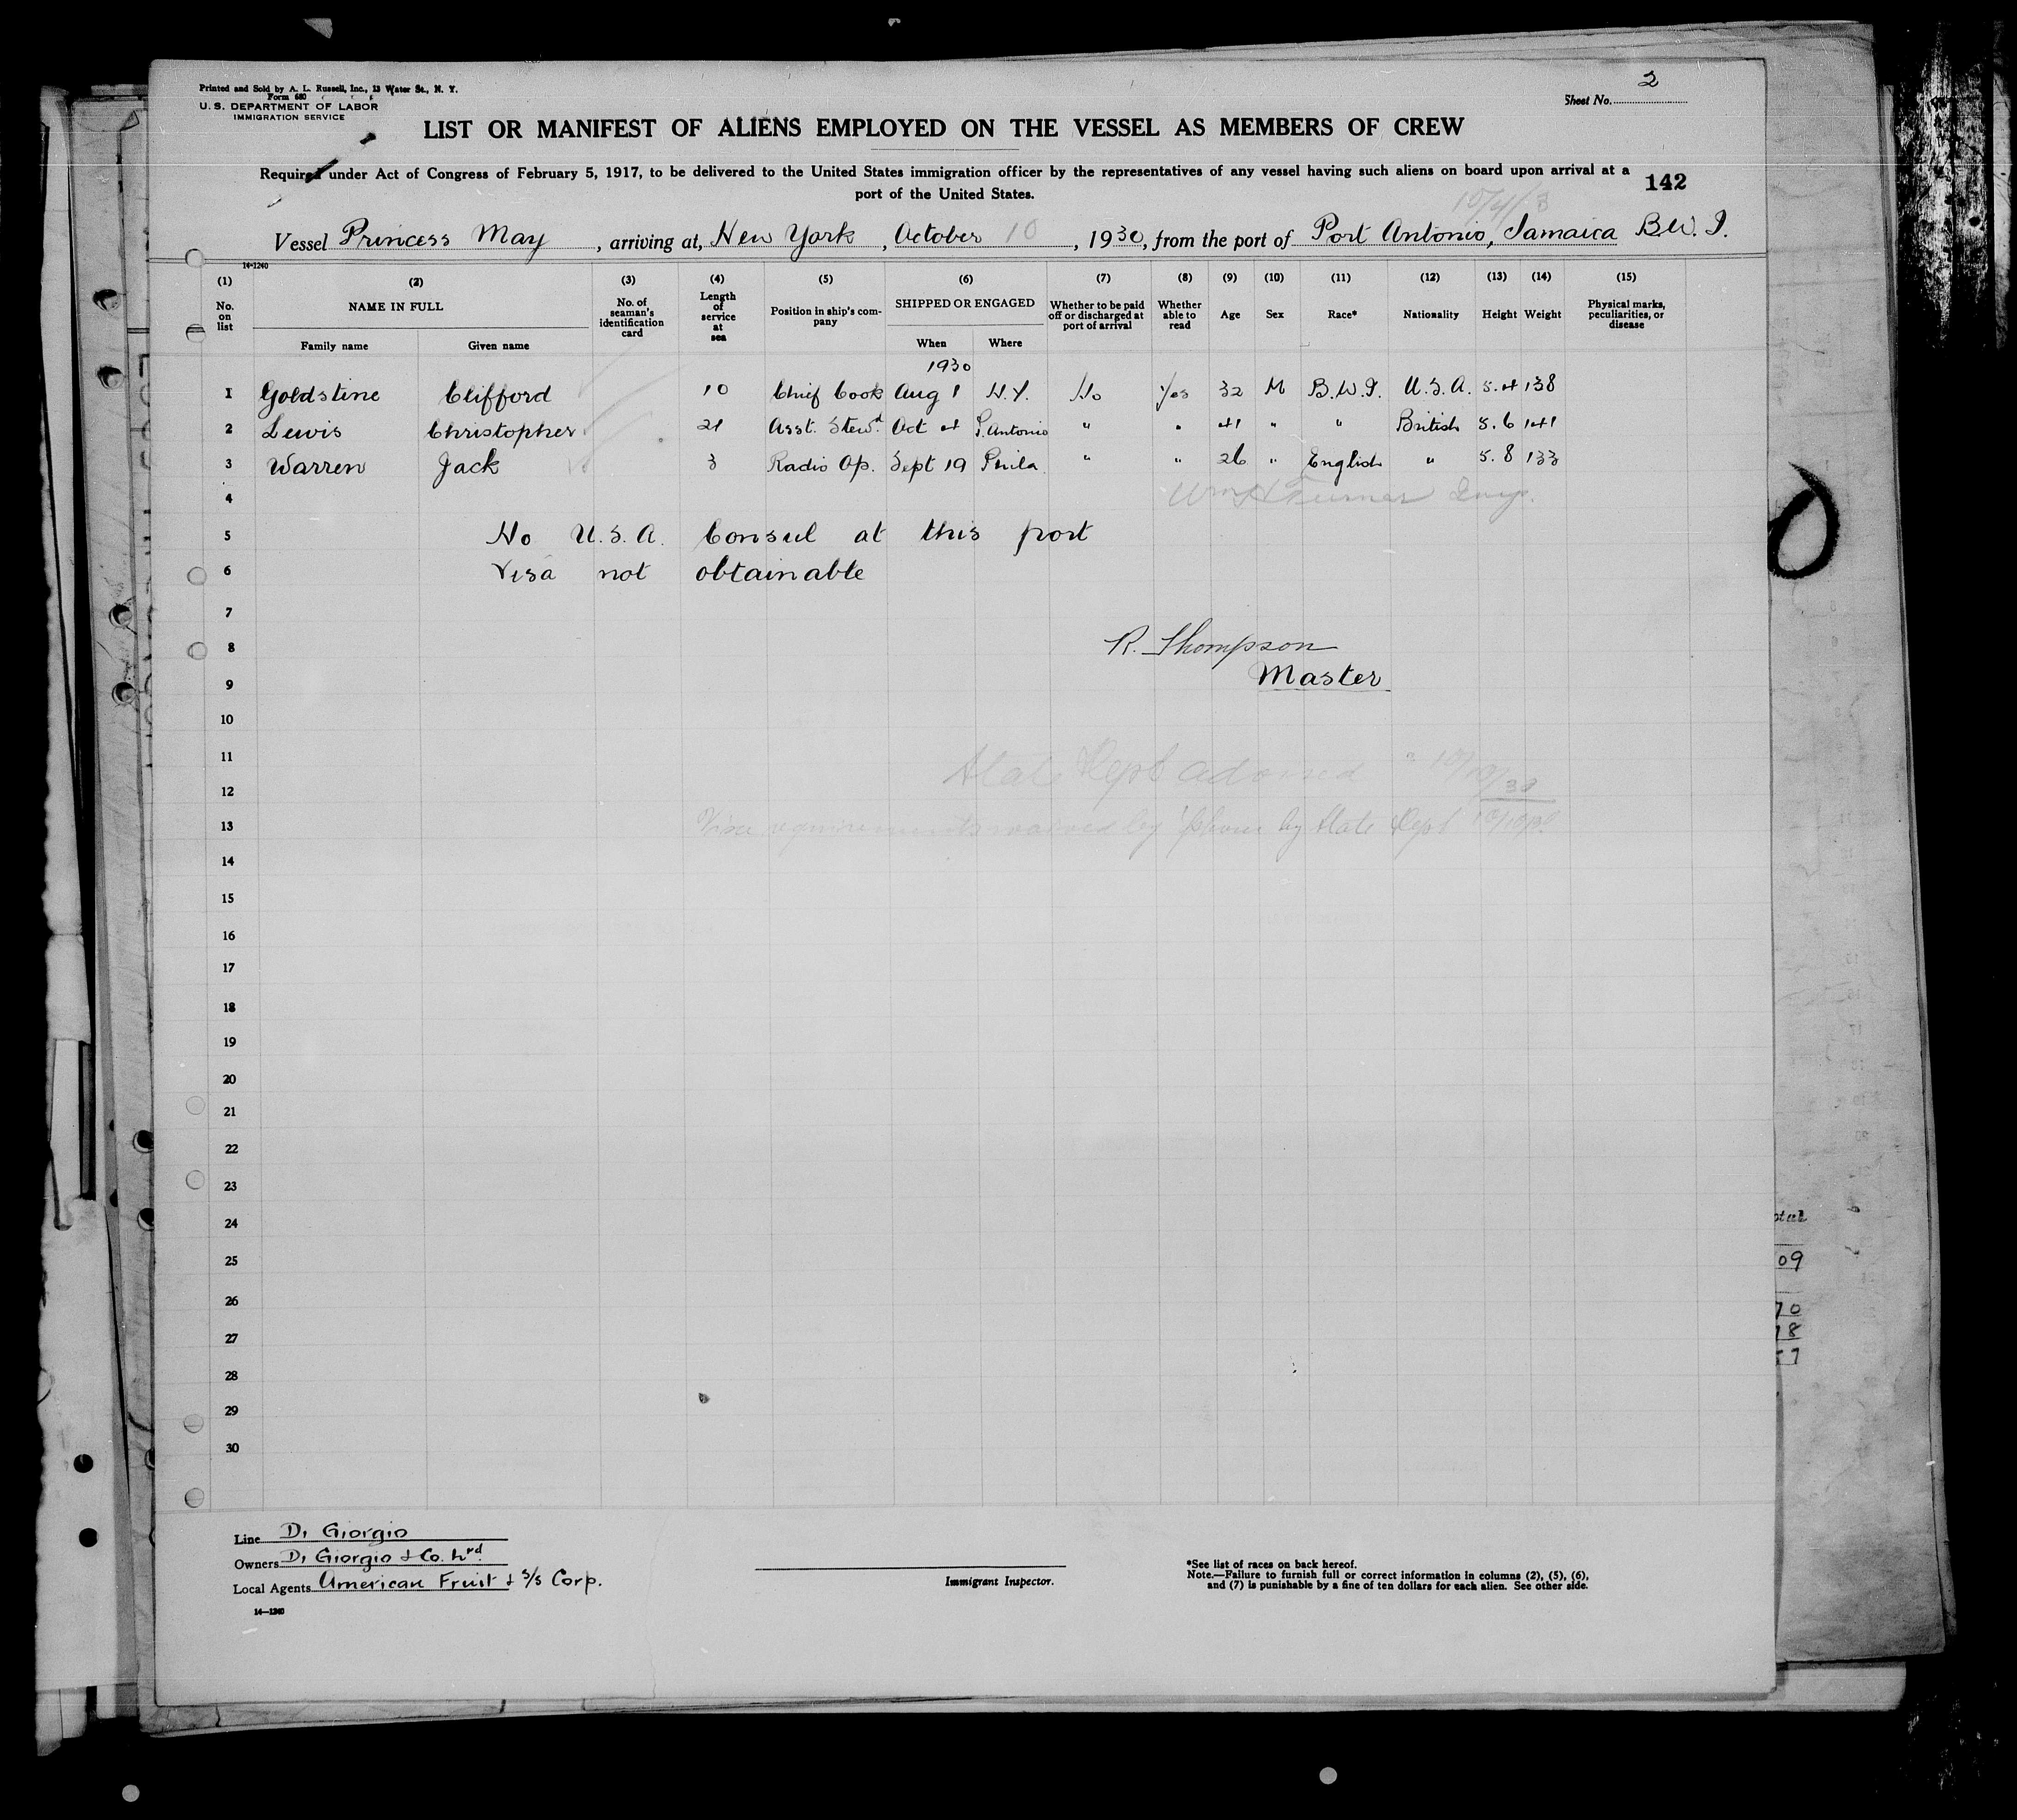 Printed and Sold by A. L. Russell, Inc., 13 Water St., N. Y.
Form 680
U. S. DEPARTMENT OF LABOR
IMMIGRATION SERVICE
2
Sheet No.
LIST OR MANIFEST OF ALIENS EMPLOYED ON THE VESSEL AS MEMBERS OF CREW
Required under Act of Congress of February 5, 1917, to be delivered to the United States immigration officer by the representatives of any vessel having such aliens on board upon arrival at a
port of the United States.
142
Vessel Princess May, arriving at, New York, October 10, 1930, from the port of Port Antonio, Jamaica B.W.I.
14-1240
(1) (2) (3) (4) (5) (6) (7) (8) (9) (10) (11) (12) (13) (14) (15)
No. on list NAME IN FULL No. of seaman's identification card Length of service at sea Position in ship's company SHIPPED OR ENGAGED Whether to be paid off or discharged at port of arrival Whether able to read Age Sex Race* Nationality Height Weight Physical marks, peculiarities, or disease
Family name Given name When Where
1930
1 Goldstine Clifford 10 Chief Cook Aug 1 N.Y. No Yes 32 M B.W.I. U.S.A. 5.4 138
2 Lewis Christopher 21 Asst. Stewd. Oct 4 P. Antonio " " 41 " " British 5.6 141
3 Warren Jack 3 Radio Op. Sept 19 Phila " " 26 " English " 5.8 133
4 Wm H Turner Insp.
5 No U.S.A. Consul at this port
6 Visa not obtainable
7
8 R. Thompson
9 Master
10
11 State Dept advised 10/10/30
12
13 Visa requirements waived by 'phone by State Dept 10/10/30
14
15
16
17
18
19
20
21
22
23
24
25
26
27
28
29
30
Line Di Giorgio
Owners Di Giorgio & Co. Ltd.
Local Agents American Fruit & S/S Corp.
Immigrant Inspector.
*See list of races on back hereof.
Note.—Failure to furnish full or correct information in columns (2), (5), (6),
and (7) is punishable by a fine of ten dollars for each alien. See other side.
14—1240
09
70
18
57